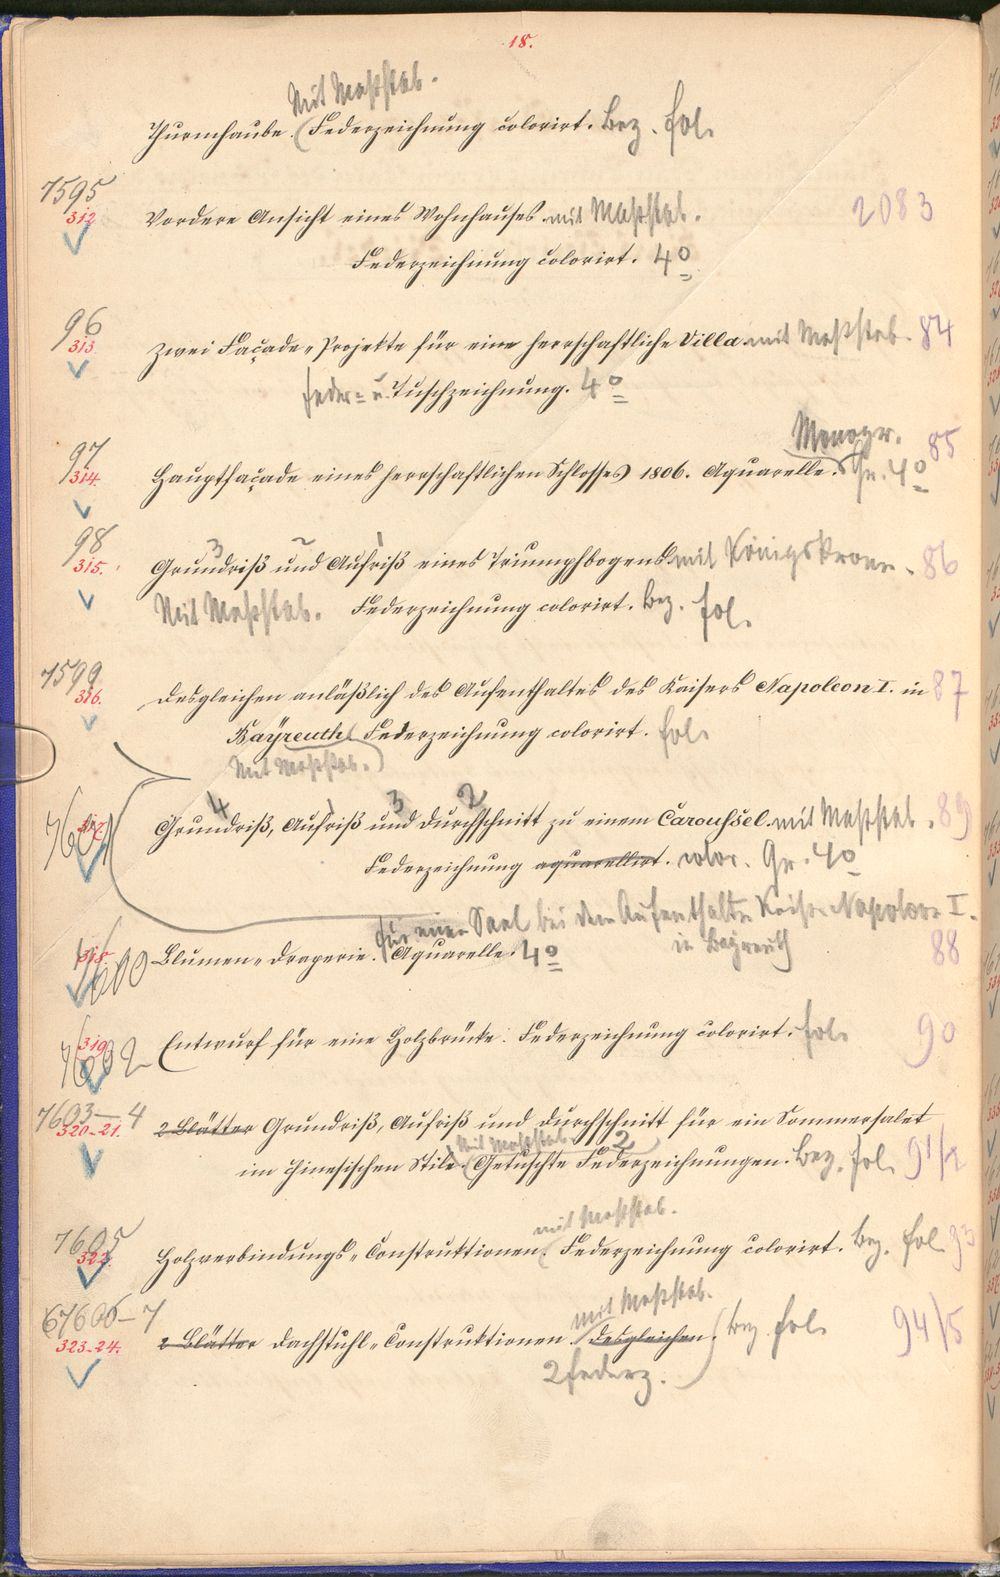 18.
Mit Maßstab.
Thurmhaube. (Federzeichnung colorirt. Bez. fol.
7595
312 Vordere Ansicht eines Wohnhauses mit Maßstab. 2083
Federzeichnung colorirt. 4º
96
313. Zwei Façade-Projekte für eine herrschaftliche Villa mit Maßstab. 84
Feder= u. Tuschzeichnung. 4º
Monogr. 85
97
314. Hauptfaçade eines herrschaftlichen Schlosses 1806. Aquarelle. Gr. 4º
98 3 2 1
315. Grundriß und Aufriß eines Triumphbogens mit Königskrone. 86
Mit Maßstab. Federzeichnung colorirt. Bez. fol.
7599
316. Desgleichen anläßlich des Aufenthaltes des Kaisers Napoleon I. in 87
Bayreuth. Federzeichnung colorirt. fol.
Mit Maßstab.)
4 1 3 2
7601 317. Grundriß, Aufriß und Durchschnitt zu einem Caroussel. mit Maßstab. 89
Federzeichnung aquarellirt. color. Gr. 4º
für einen Saal bei dem Aufenthalte Kaiser Napoleon I.
in Bayreuth 88
318. 7600 Blumen-Draperie. Aquarelle. 4º
319. 7602 Entwurf für eine Holzbrücke. Federzeichnung colorirt. fol. 90
7603-4
320-21. 2 Blätter Grundriß, Aufriß und Durchschnitt für ein Sommersalet
Mit Maßstab. 2
im chinesischen Stile. (Getuschte Federzeichnungen. Bez. fol. 91/2
mit Maßstab.
7605
322. Holzverbindungs-Construktionen. Federzeichnung colorirt. Bez. fol. 93
mit Maßstab.
7606-7
323-24. 2 Blätter Dachstuhl-Construktionen. Desgleichen.) Bez. fol. 94/5
2 Federz.